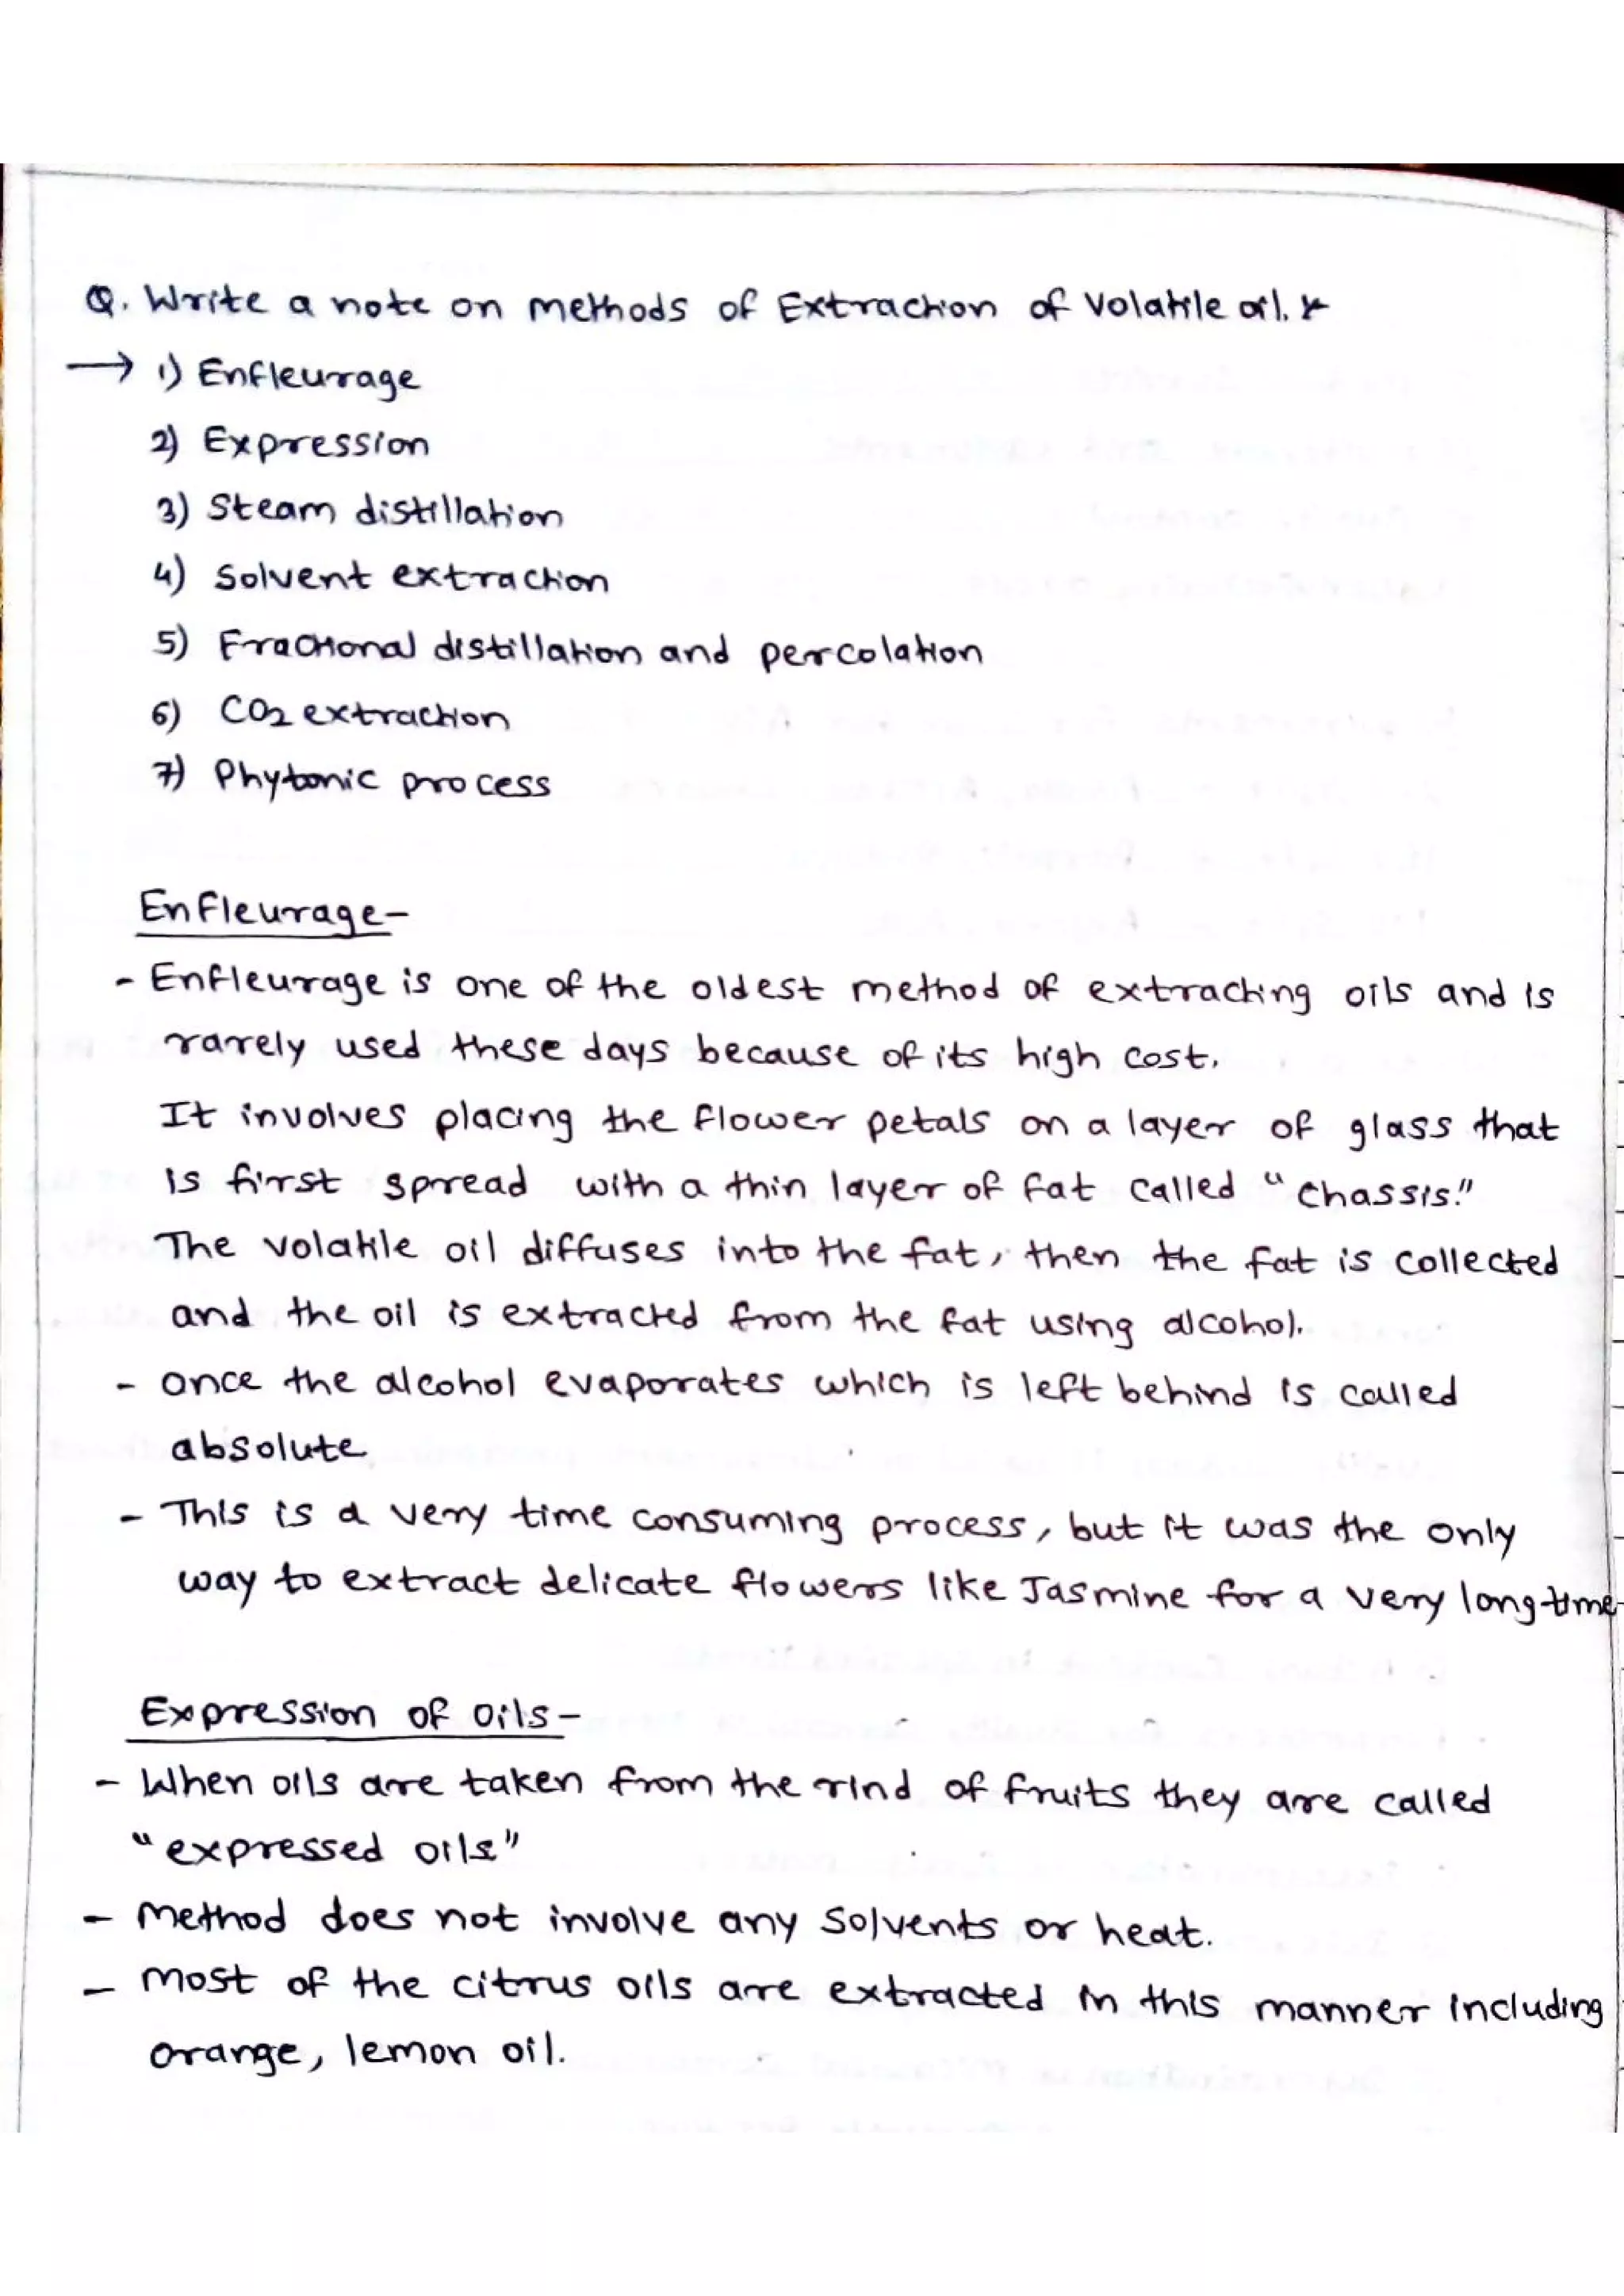 Q. Write a note on methods of Extraction of Volatile oil. *
→ 1) Enfleurage
2) Expression
3) Steam distillation
4) Solvent extraction
5) Fractional distillation and percolation
6) CO2 extraction
7) Phytonic process
Enfleurage-
- Enfleurage is one of the oldest method of extracting oils and is
rarely used these days because of its high cost.
It involves placing the flower petals on a layer of glass that
is first spread with a thin layer of fat called "chassis."
The volatile oil diffuses into the fat, then the fat is collected
and the oil is extracted from the fat using alcohol.
- once the alcohol evaporates which is left behind is called
absolute.
- This is a very time consuming process, but it was the only
way to extract delicate flowers like Jasmine for a very long time
Expression of oils-
- When oils are taken from the rind of fruits they are called
"expressed oils"
- Method does not involve any solvents or heat.
- most of the citrus oils are extracted in this manner including
orange, lemon oil.